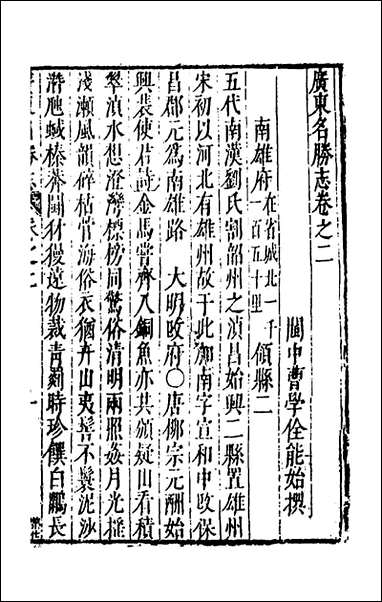 廣東名勝志卷之二
閩中曹學佺能始撰
南雄府在省城北一千一百五十里領縣二
五代南漢劉氏割韶州之湞昌始興二縣置雄州
宋初以河北有雄州故于此加南字宣和中改保
昌郡元爲南雄路 大明改府〇唐柳宗元酬始
興裴使君詩金馬嘗齊入銅魚亦共頒疑山看積
翠湞水想澄灣標榜同驚俗清明兩照姦月光搖
淺瀬風韻碎枯菅海俗衣猶卉山夷髻不鬟泥沙
潛虺蜮榛莽鬪豺獌遠物裁青罽時珍饌白鷴長